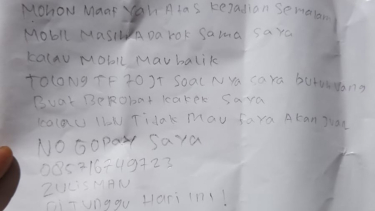 MOHON Maaf Yah Atas Kejadian Semalam
Mobil Masih ADA KOK Sama Saya
Kalau Mobil Mau balik
TOLONG TF 70 JT Soal Nya Saya butuh uang
Buat BEROBAT Kakek Saya
Kalau Ibu Tidak Mau Saya Akan Jual
NO GOPAY Saya
ZULISMAN
Di Tunggu Hari Ini!